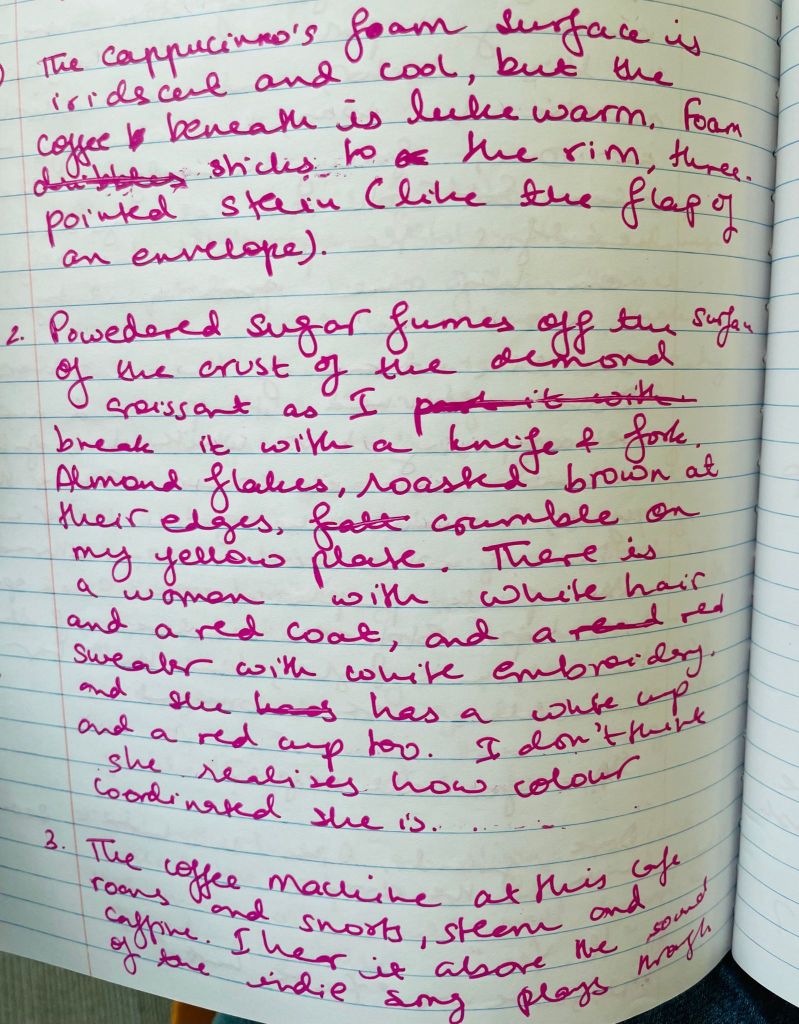 The cappucinno's foam surface is
iridscent and cool, but the
coffee beneath is luke warm. Foam
dribbles sticks to the rim, three-
pointed stain (like the flap of
an envelope).
2. Powedered sugar fumes off the surface
of the crust of the almond
croissant as I part it with
break it with a knife & fork.
Almond flakes, roasted brown at
their edges, fall crumble on
my yellow plate. There is
a woman with white hair
and a red coat, and a read red
sweater with white embroidery.
and she has a white cup
and a red cup too. I don't think
she realises how colour
coordinated she is.......
3. The coffee machine at this cafe
roars and snorts, steam and
caffine. I hear it above the sound
of the indie song plays through